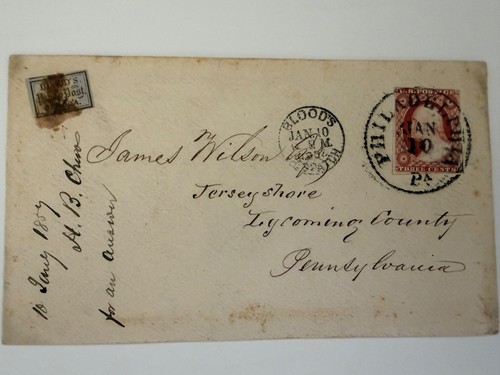 BLOOD'S
Post.
BLOOD'S
JAN 10
DESPATCH
U.S. POSTAGE
PHILADELPHIA
JAN
10
PA
THREE CENTS
James Wilson
Jersey shore
Lycoming County
Pennsylvania
10 Jany 1857
H. B. Chew
for an answer